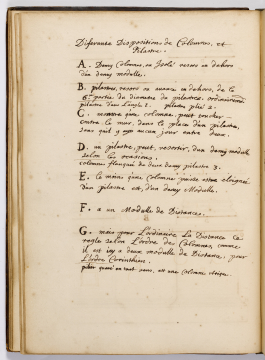 Differente Dispositions de Colonnes, et
Pilastre.
A. Demy Colonne, ou Isolé ressort en dehors
d'un demy modulle.
B. pilastre, ressort ou avance en dehors, de la
6e partie du diametre de pilastre. ordinairement
pilastre dans l'angle 1. pilastre plié 2.
C. mettre une colonne, peut toucher
contre le mur, dans la place d'un pilastre,
sans quil y aye aucun jour entre deux.
D. un pilastre, peut, ressortir, d'un demy modulle
selon les occasions.
colonne flanqué de deux demy pilastre 3.
E. le moins q'une colonne puisse estre eloigné
d'un pilastre est, d'un demy Modulle.
F. a un Modulle de Distance.
G. mais pour L'ordinaire La Distance Se
regle selon L'ordre des Colonnes, comme
il est icy a deux modulle de Distance, pour
L'ordre Corinthien.
pilier quaré en tout sens, et une Colonne